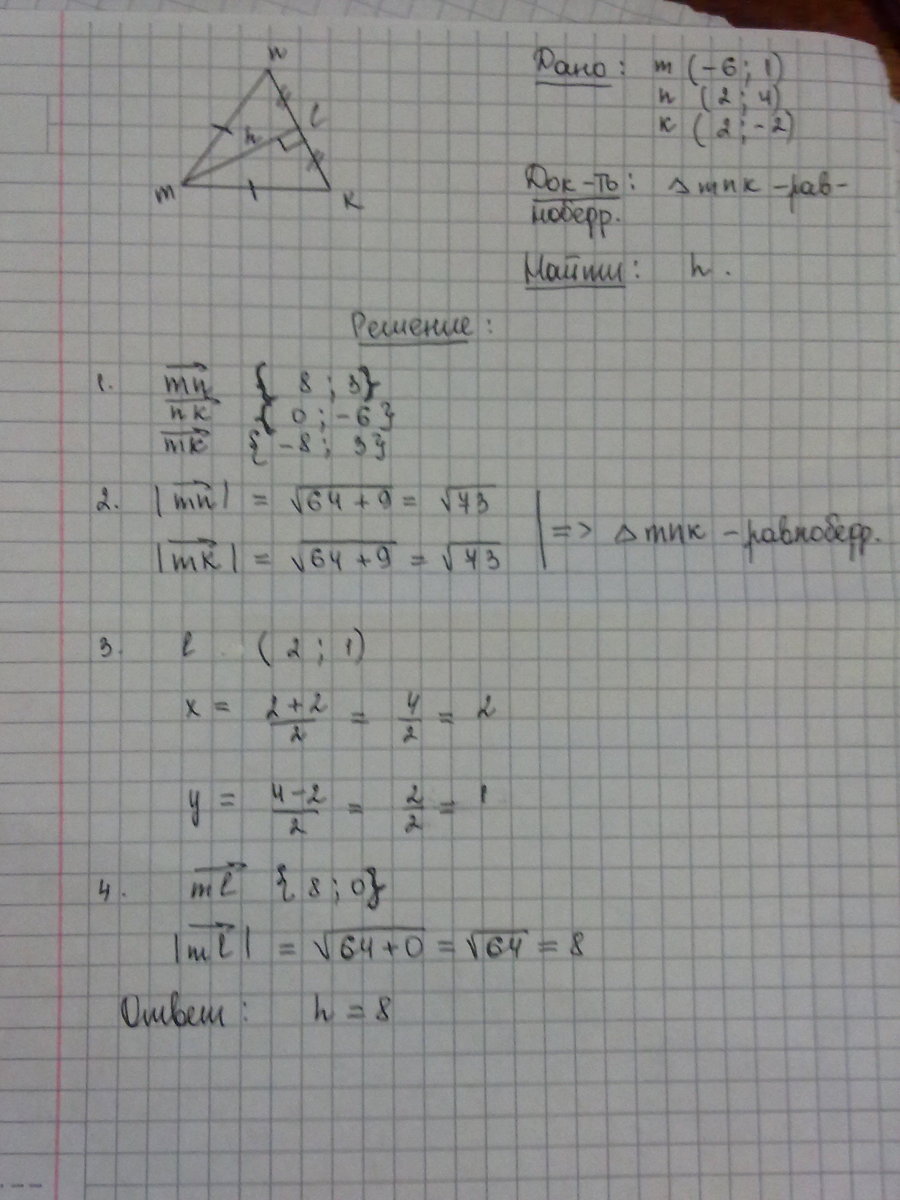 n
l
h
m
к
Дано: m (-6; 1)
n (2; 4)
к (2; -2)
Док-ть: △ mnк -рав-
нобедр.
Найти: h.
Решение:
1. →mn { 8 ; 3}
→nк { 0 ; -6}
→mк { -8 ; 3}
2. |→mn| = √64 + 9 = √73
|→mк| = √64 + 9 = √73
=> △ mnк - равнобедр.
3. l (2 ; 1)
x = (2+2)/2 = 4/2 = 2
y = (4-2)/2 = 2/2 = 1
4. →ml {8 ; 0}
|→ml| = √64 + 0 = √64 = 8
Ответ: h = 8